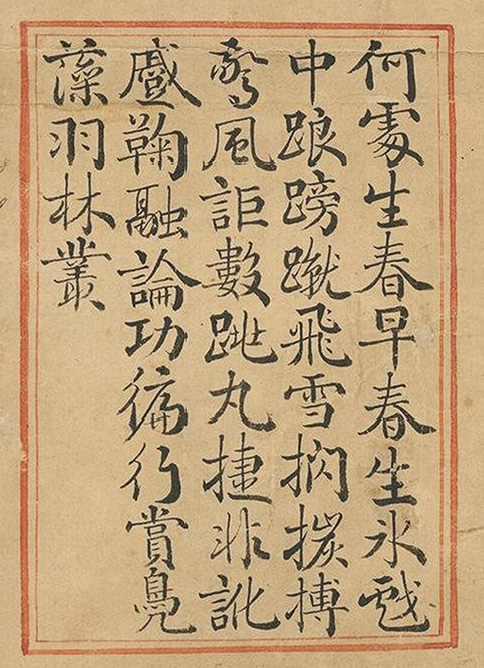 何處生春早春生氷戲
中踉䠙蹴飛雪搏
驚風詎數跳丸捷非訛
蹙鞠融論功徧行賞鳧
藻羽林叢